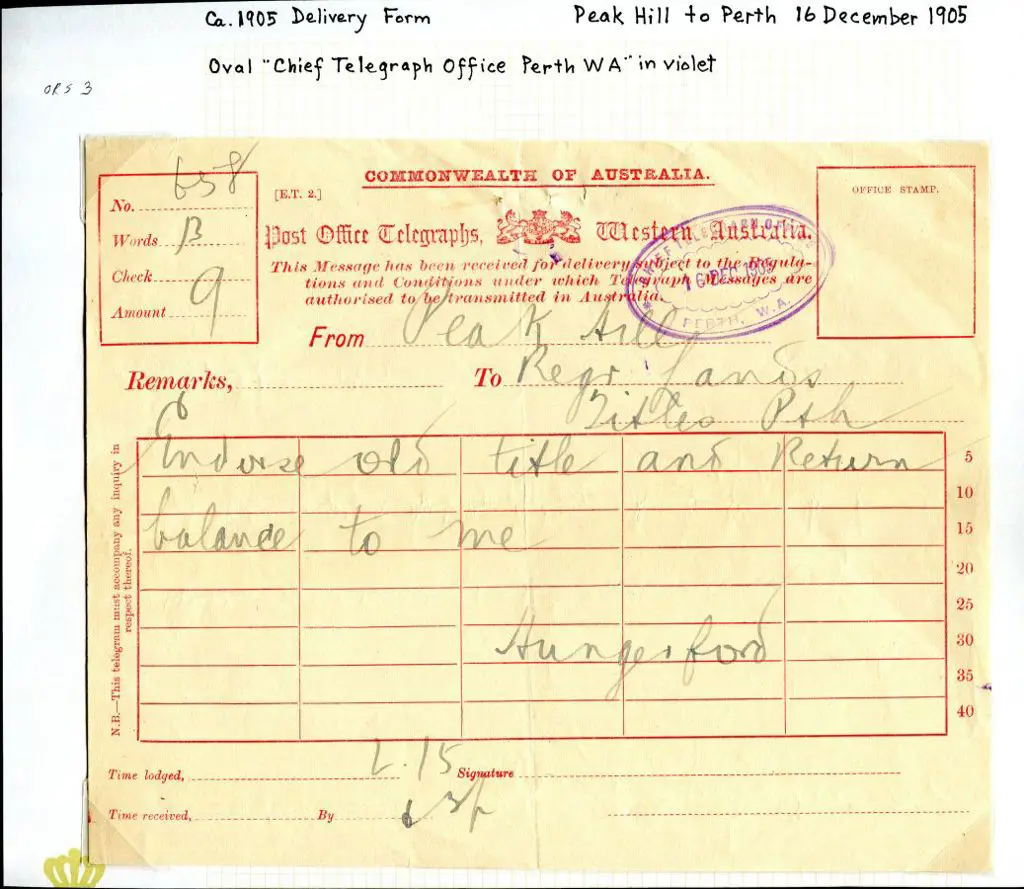 Ca. 1905 Delivery Form Peak Hill to Perth 16 December 1905
Oval "Chief Telegraph Office Perth WA" in violet
ORS 3
No. 658
Words 13
Check 9
Amount
[E.T. 2.]
COMMONWEALTH OF AUSTRALIA.
Post Office Telegraphs, Western Australia.
This Message has been received for delivery subject to the Regula-
tions and Conditions under which Telegraph Messages are
authorised to be transmitted in Australia.
OFFICE STAMP.
CHIEF TELEGRAPH OFFICE
16 DEC 1905
PERTH, W.A.
From Peak Hill
Remarks, To Regr Lands
Titles Pth
N.B.—This telegram must accompany any inquiry in
respect thereof.
Endorse old title and Return 5
10
balance to me 15
20
25
Hungerford 30
35
40
Time lodged, 2.15 Signature
Time received, By